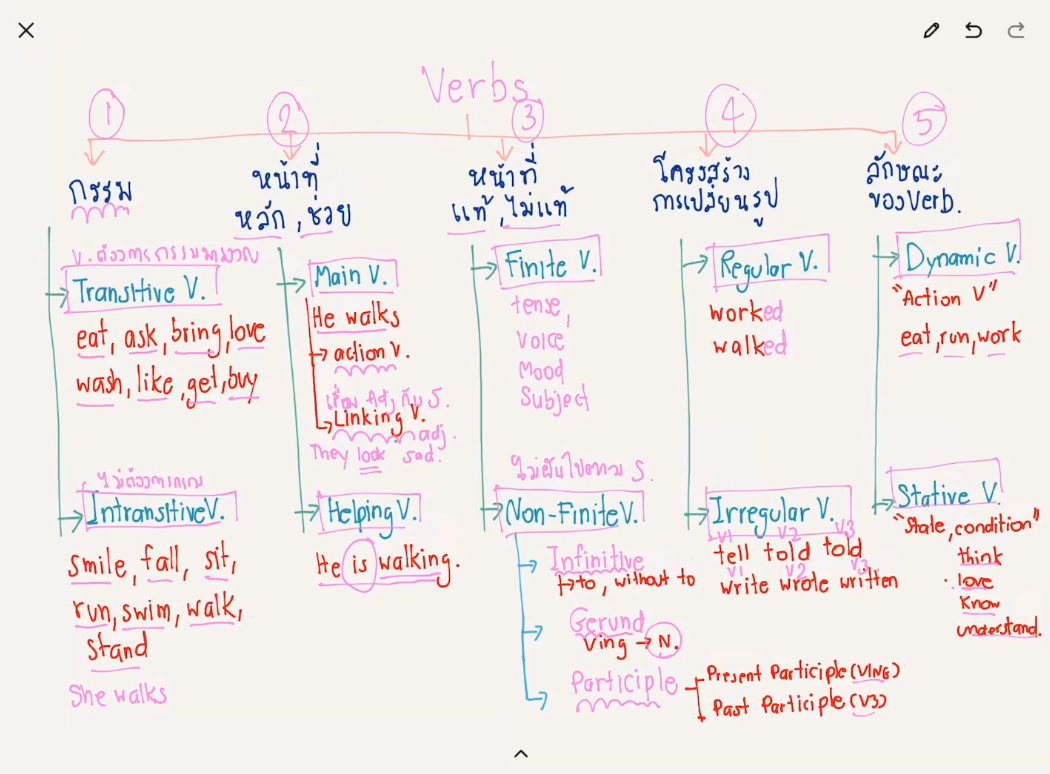 Verbs
① ② ③ ④ ⑤
กรรม
V. ต้องการกรรมมารองรับ
Transitive V.
eat, ask, bring, love
wash, like, get, buy
ไม่ต้องการกรรม
Intransitive V.
smile, fall, sit,
run, swim, walk,
stand
She walks
หน้าที่
หลัก, ช่วย
Main V.
He walks
action V.
เชื่อม Adj กับ S.
Linking V.
adj.
They look sad.
Helping V.
He is walking.
หน้าที่
แท้, ไม่แท้
Finite V.
tense,
Voice
Mood
Subject
ไม่ผันไปตาม S.
Non-Finite V.
Infinitive
to, without to
Gerund
Ving → N.
Participle
Present Participle (VING)
Past Participle (V3)
โครงสร้าง
การเปลี่ยนรูป
Regular V.
worked
walked
Irregular V.
V1 V2 V3
tell told told
V1 V2 V3
write wrote written
ลักษณะ
ของ Verb.
Dynamic V.
"Action V"
eat, run, work
Stative V.
"State, condition"
think
love
know
understand.